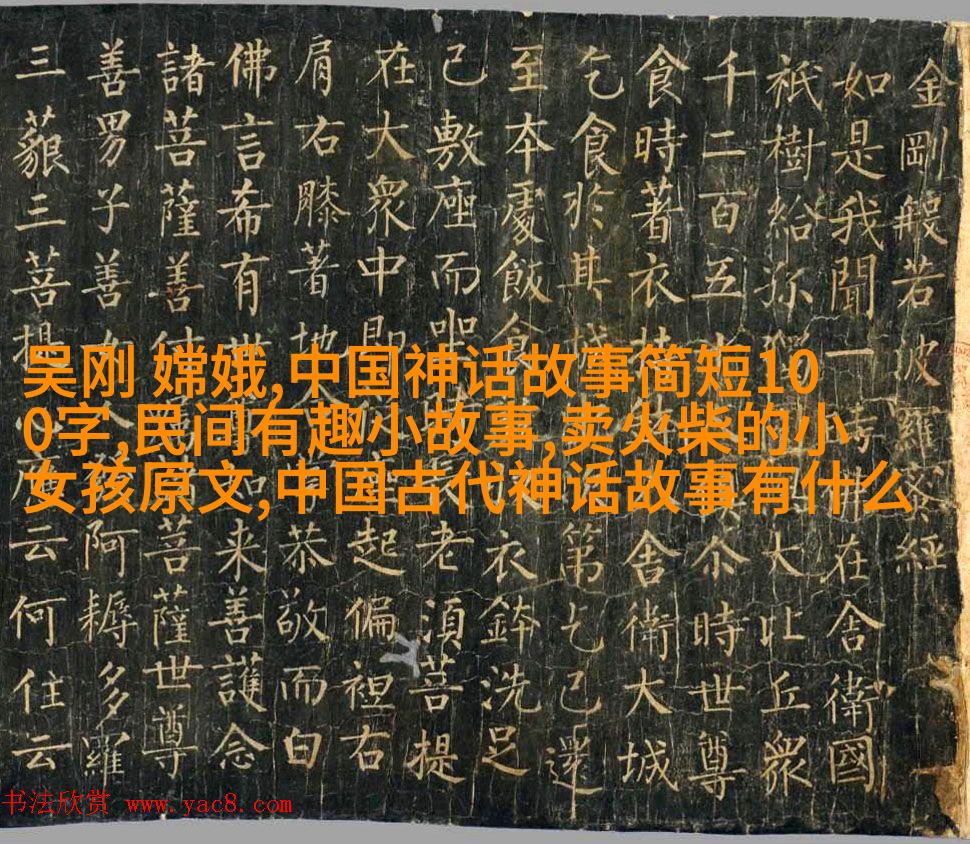 金剛般若波羅蜜經
如是我聞一時在舍衛國
祇樹給孤大比丘眾
千二百五尒時世尊
食時著衣舍衛大城
乞食於其城第乞已還
至本處飯食衣鉢洗足
已敷座而坐老須菩提
在大眾中即起偏袒右
肩右膝著地恭敬而白
佛言希有世如來善護念
諸菩薩善付菩薩世尊
善男子善女阿耨多羅
三藐三菩提云何住云
吴刚 嫦娥,中国神话故事简短10
0字,民间有趣小故事,卖火柴的小
女孩原文,中国古代神话故事有什么
书法欣赏 www.yac8.com